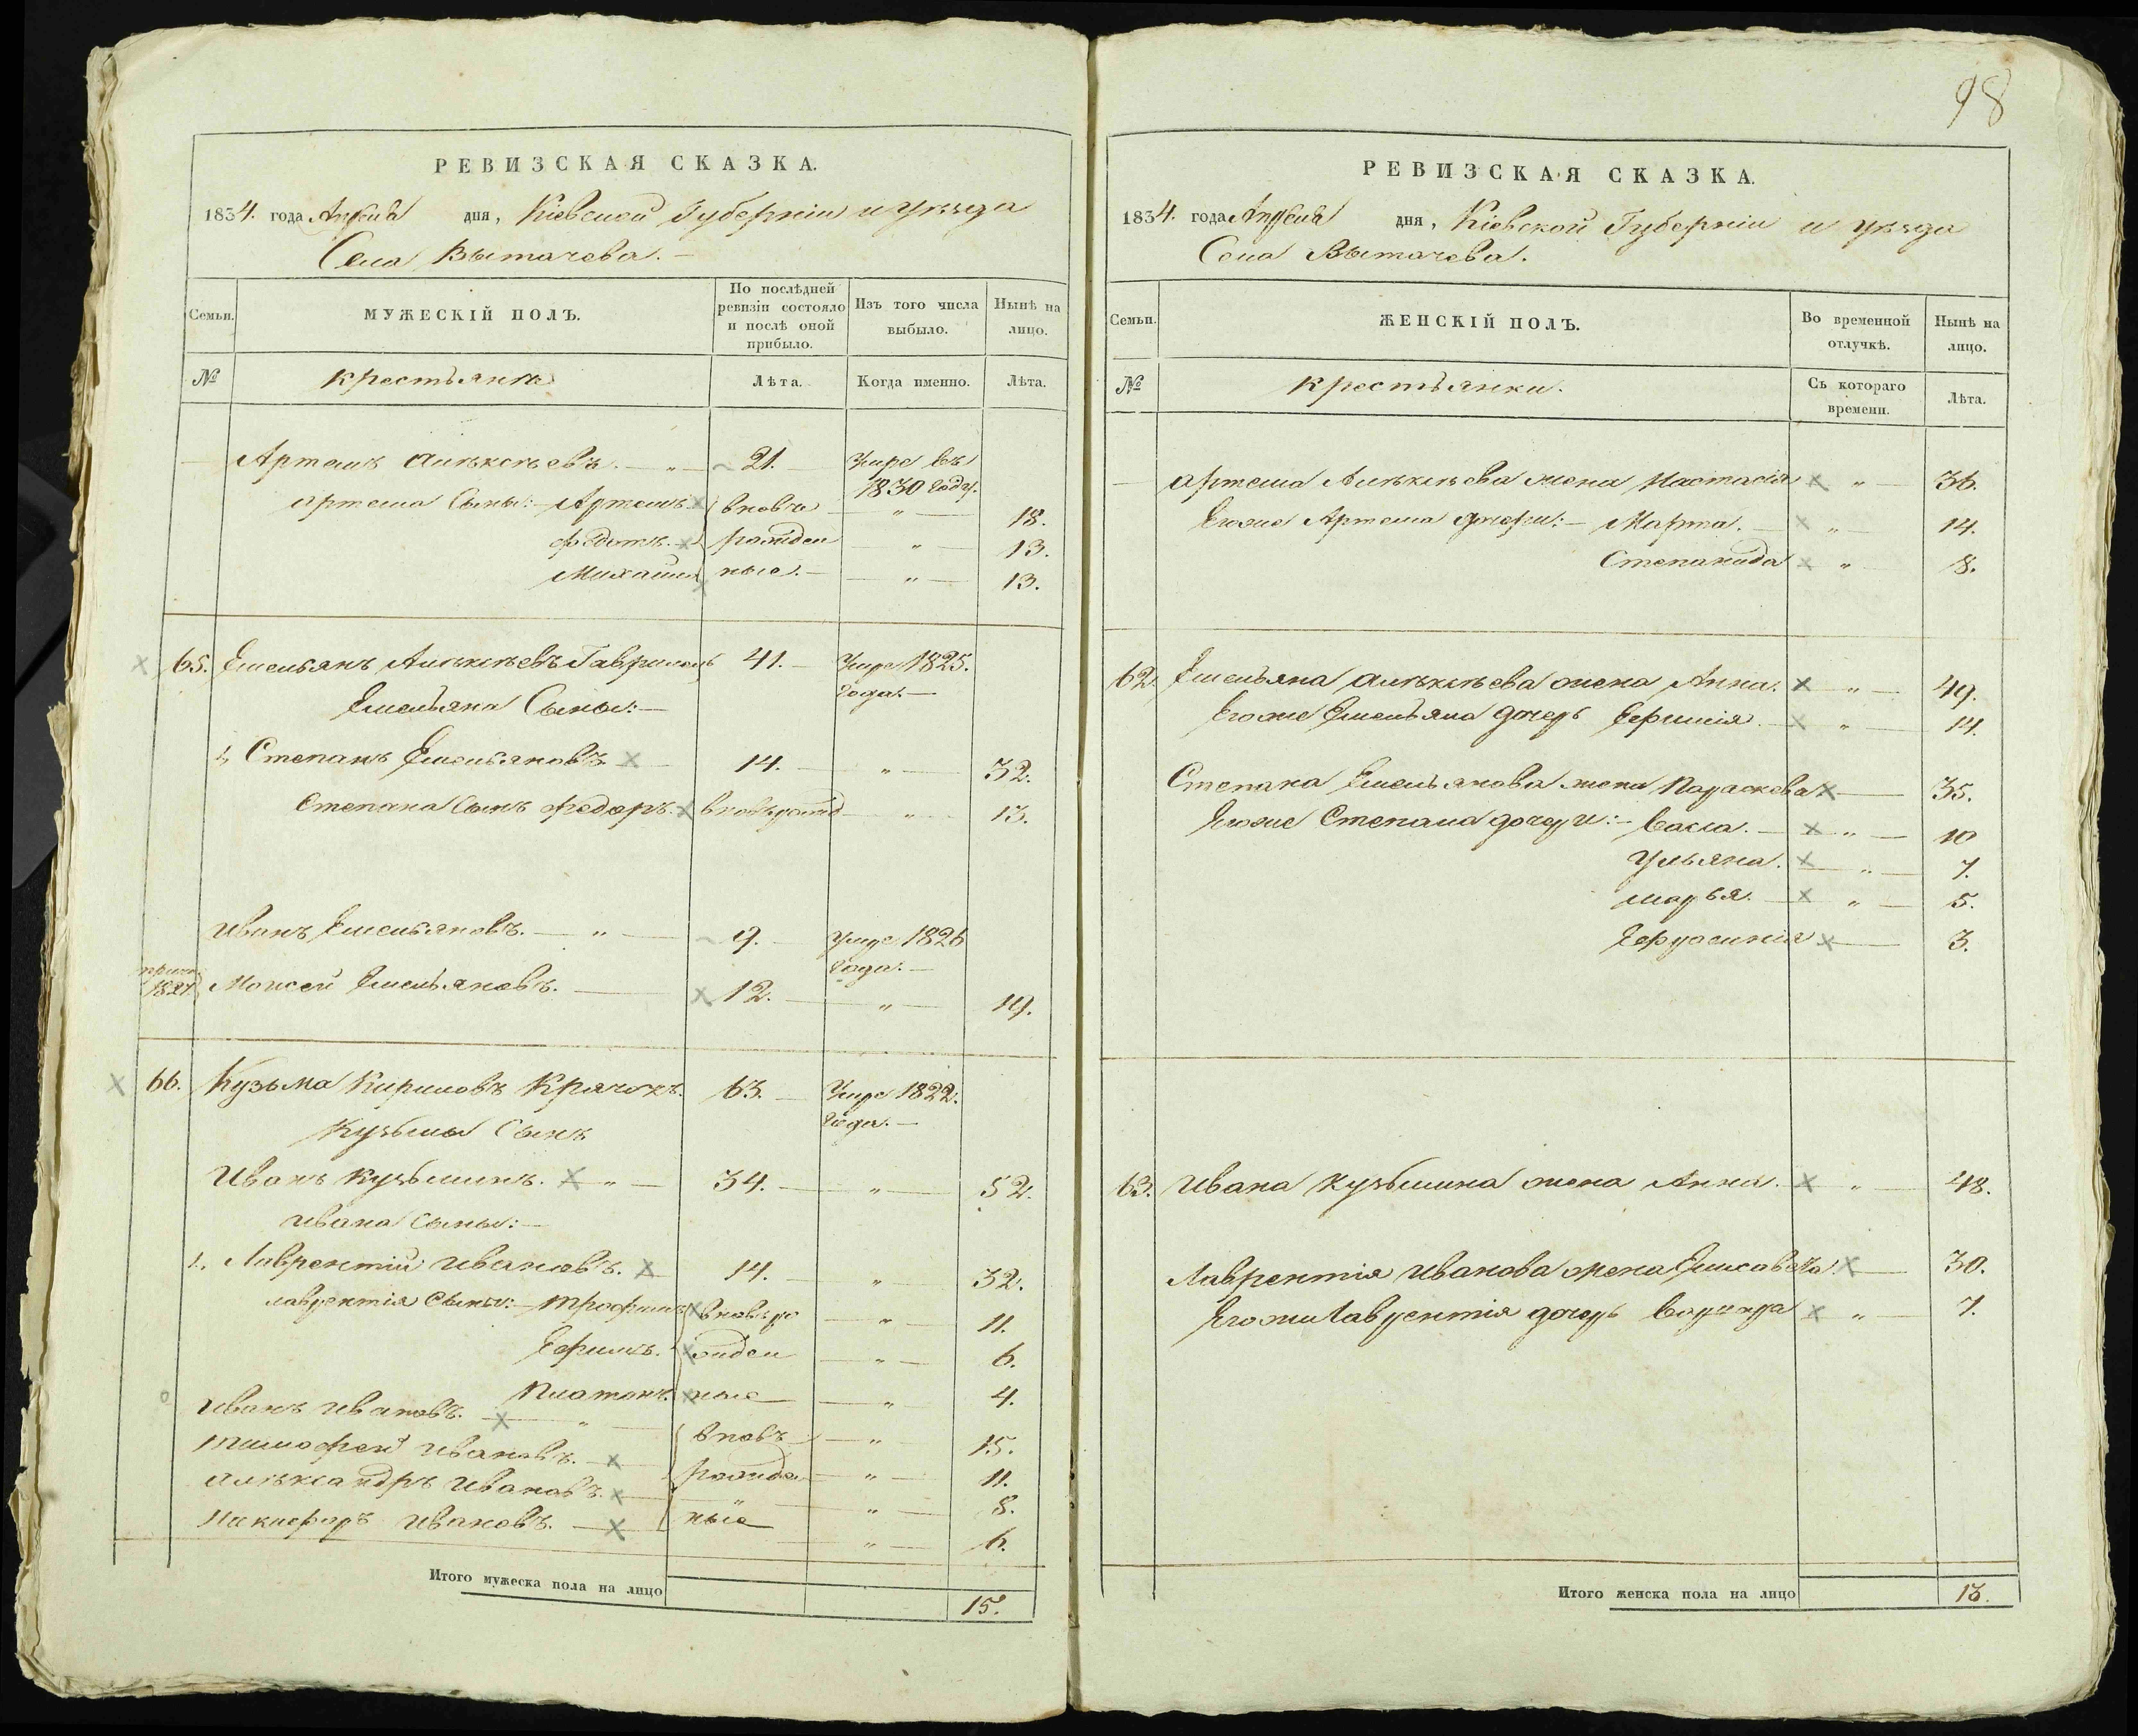 РЕВИЗСКАЯ СКАЗКА.
1834. года Апреля дня, Кіевской Губерніи и уѣзда
Села Вытачева.
Семьи.
МУЖЕСКІЙ ПОЛЪ.
По послѣдней ревизіи состояло и послѣ оной прибыло.
Изъ того числа выбыло.
Нынѣ на лицо.
№
крестьяня
Лѣта.
Когда именно.
Лѣта.
Артемъ Алѣксѣевъ. — „ — 21. — Умре въ
1830 году.
Артема Сыны: Артемъ. вновь — „ — 18.
Федотъ. рожден — „ — 13.
Михаилъ ные. — „ — 13.
65. Емельянъ Алѣксѣевъ Гавриленко 41. — Умре 1825.
года. —
Емельяна Сыны: —
1, Степанъ Емельяновъ 14. — „ — 32.
Степана Сынъ Федоръ. вновь рожд — „ — 13.
Иванъ Емельяновъ. — „ — 9. — Умре 1826
года. —
1827. Моисей Емельяновъ. — 12. — „ — 19.
66. Кузьма Кириловъ Крячокъ. 63. — Умре 1822.
года. —
Кузьмы Сынъ
Иванъ Кузьминъ. „ — 34. — „ — 52.
Ивана Сыны: —
1. Лаврентій Ивановъ. 14. — „ — 32.
Лаврентія Сыны: Трофимъ вновь ро — „ — 11.
Ефимъ. жден — „ — 6.
Платонъ. ные — „ 4.
Иванъ Ивановъ. — „ — вновь — „ 15.
Тимофей Ивановъ. — рожде — „ — 11.
Алѣксандръ Ивановъ. — „ — 8.
Никифоръ Ивановъ. — ные — „ — 6.
Итого мужеска пола на лицо
15.
98
РЕВИЗСКАЯ СКАЗКА.
1834. года Апреля дня, Кіевской Губерніи и уѣзда
Села Вытачева.
Семьи.
ЖЕНСКІЙ ПОЛЪ.
Во временной отлучкѣ.
Нынѣ на лицо.
№
крестьянки.
Съ котораго времени.
Лѣта.
Артема Алѣксѣева жена Настасія „ — 36.
Егоже Артема дочери: — Марта. „ — 14.
Степанида „ — 8.
62. Емельяна Алѣксѣева жена Анна. „ — 49.
Егоже Емельяна дочерь Ефимія. „ — 14.
Степана Емельянова жена Параскева — 35.
Егоже Степана дочери: — Васса. — „ — 10
Ульяна. „ — 7.
Марья. — „ — 5.
Ефросинія — 3.
63. Ивана Кузьмина жена Анна. „ — 48.
Лаврентія Иванова жена Елисавета. — 30.
Егоже Лаврентія дочерь Варвара „ — 7.
Итого женска пола на лицо
13.